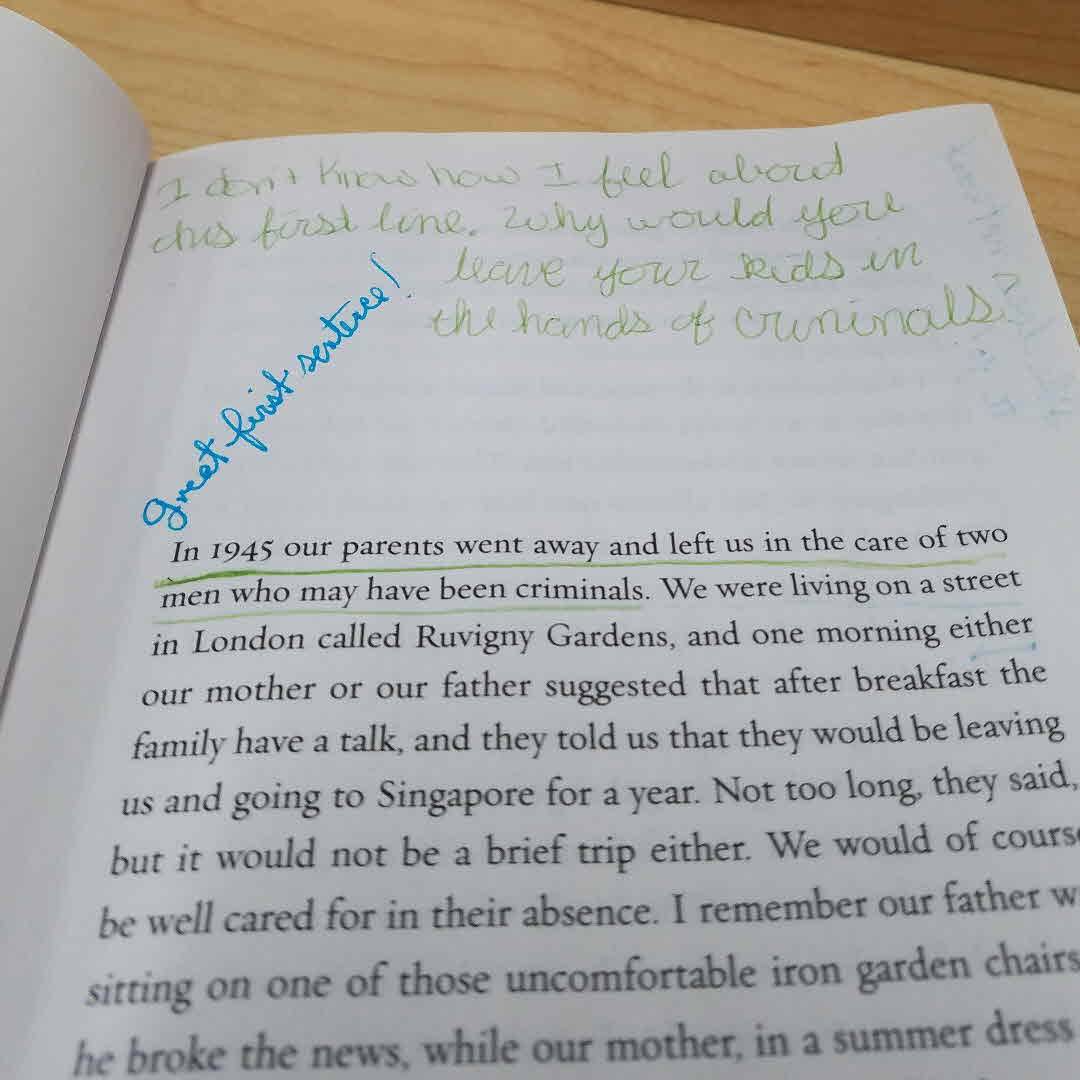 I don't know how I feel about
this first line. Why would you
leave your kids in
the hands of criminals?
Great first sentence!
In 1945 our parents went away and left us in the care of two
men who may have been criminals. We were living on a street
in London called Ruvigny Gardens, and one morning either
our mother or our father suggested that after breakfast the
family have a talk, and they told us that they would be leaving
us and going to Singapore for a year. Not too long, they said,
but it would not be a brief trip either. We would of cours
be well cared for in their absence. I remember our father w
sitting on one of those uncomfortable iron garden chairs
he broke the news, while our mother, in a summer dress